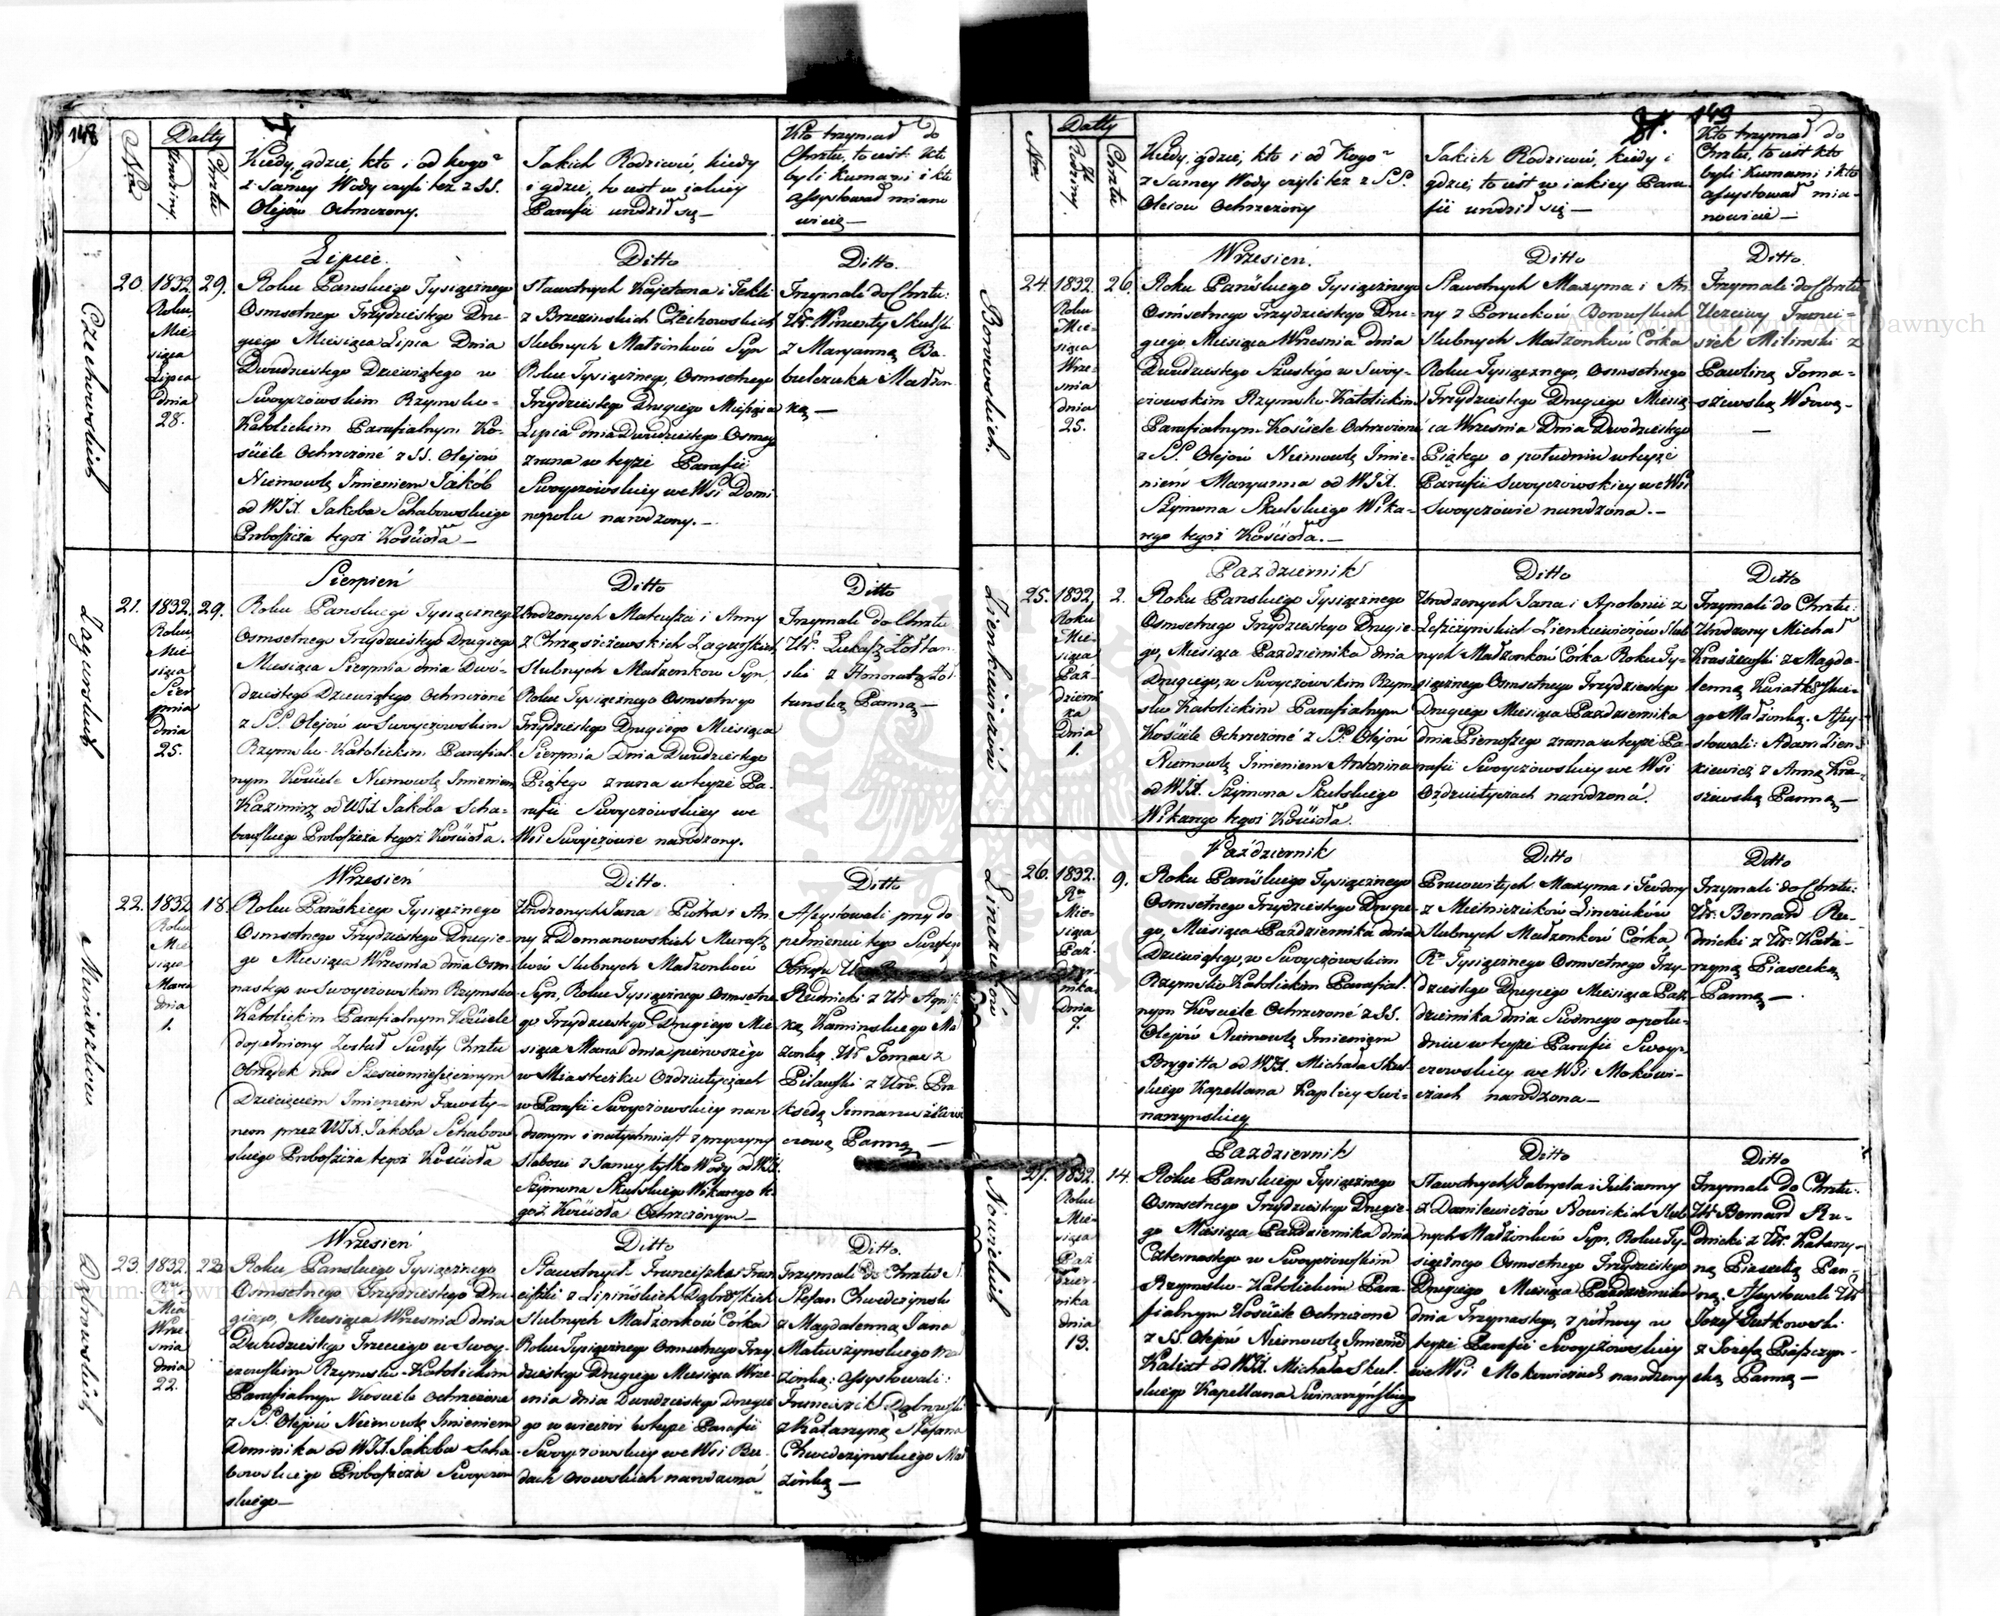 148
Nro
Datty
Urodziny.
Chrztu
Kiedy, gdzie, kto i od kogo
z Samey Wody czyli też z S.S.
Olejów Ochrzczony.
Jakich Rodziców, kiedy
i gdzie, to iest w iakiey
Parafii urodził się —
Kto trzymał do
Chrztu, to iest kto
byli Kumami i kto
assystował miano
wicie —
Czechowskich
20.
1832
Roku
Mie-
siąca
Lipca
dnia
28.
29.
Lipiec.
Roku Panskiego Tysiącznego
Osmsetnego Trzydziestego Dru-
giego Miesiąca Lipca Dnia
Dwudziestego Dziewiątego w
Swoyczowskim Rzymsko-
Katolickim Parafialnym Ko-
ściele Ochrzczoné z S.S. Olejów
Niemowlę Imieniem Jakób
od WJX. Jakoba Schabowskiego
Proboszcza tegoż Kościoła —
Ditto
Sławetnych Kajetana i Tekli
z Brzezinskich Czechowskich
Slubnych Małżonków Syn
Roku Tysiącznego, Osmsetnego
Trzydziestego Drugiego Miesiąca
Lipca dnia Dwudziestego Osmego
zrana w teyże Parafii
Swoyczowskiey we Wsi Domi
nopolu narodzony. —
Ditto.
Trzymali do Chrztu:
Ur. Wincenty Skulski
z Maryanną Ba-
bulczuka Małżon
ką —
Zagurskich
21.
1832.
Roku
Mie
siąca
Sier
pnia
Dnia
25.
29.
Sierpień
Roku Panskiego Tysiącznego
Osmsetnego Trzydziestego Drugiego
Miesiąca Sierpnia dnia Dwu-
dziestego Dziewiątego Ochrzczoné
z S.S. Olejów w Swoyczowskim
Rzymsko-Katolickim Parafial-
nym Kościele Niemowlę Imieniem
Kazimirz od WJX. Jakóba Scha-
bowskiego Proboszcza tegoż Kościoła.
Ditto
Urodzonych Mateusza i Anny
z Chrząszczewskich Zagurskich
Slubnych Małżonkow Syn,
Roku Tysiącznego Osmsetnego
Trzydziestego Drugiego Miesiąca
Sierpnia Dnia Dwudziestego
Piątego zrana w teyże Pa-
rafii Swoyczowskiey we
Wsi Swoyczowie narodzony.
Ditto
Trzymali do Chrztu
Ur. Łukasz Zołtan-
ski z Honoratą Zoł-
tunską Panną —
22.
1832
Roku
Mie
siąca
Marca
dnia
1.
18.
Wrzesień
Roku Pańskiego Tysiącznego
Osmsetnego Trzydziestego Drugie-
go Miesiąca Wrzesnia dnia Osm
nastego w Swoyczowskim Rzymsko
Katolickim Parafialnym Kościele
dopełniony został Święty Chrztu
Obrządek nad Sześciomiesięcznym
Dziecięciem Imieniem Fawsty-
nem przez WJX. Jakoba Schabow
skiego Proboszcza tegoż Kościoła
Ditto.
Urodzonych Jana Piotra i An
ny z Domanowskich Murasz
ków Slubnych Małżonków
Syn, Roku Tysiącznego Osmsetne
go Trzydziestego Drugiego Mie
siąca Marca dnia pierwszégo
w Miasteczku Ozdziutyczach
w Parafii Swoyczowskiey naro
dzonym i natychmiast z przyczyny
słabości z Samey tylko Wody od WJX.
Szymona Skulskiego Wikarego te
goż Kościoła Ochrzczonym —
Ditto
Assystowali przy do
pełnieniu tego Świętego
Obrzędu Ur.
Rudnicki z Ur. Agnisz
ką Kaminskiego Mał
żonką. Ur. Tomasz
Pilawski z Urw. Pra
ksedą
Panną —
Dąbrowskich
23.
1832.
Ru
Mca
Wrze-
śnia
dnia
22.
23
Wrzesień
Roku Panskiego Tysiącznego
Osmsetnego Trzydziestego Dru
giego, Miesiąca Wrzesnia dnia
Dwudziestego Trzeciego w Swoy-
czowskim Rzymsko-Katolickim
Parafialnym Kościele Ochrzczone
z S.S. Olejów Niemowlę Imieniem
Dominika od WJX. Jakoba Scha
bowskiego Proboszcza Swoyczow
skiego —
Ditto
Sławetnych Franciszka i Fran
ciszki z Lipińskich Dąbrowskich
Slubnych Małżonków Córka
Roku Tysiącznego Osmsetnego Trzy
dziestego Drugiego Miesiąca Wrze-
snia dnia Dwudziestego Drugie
go w wieczor w teyże Parafii
Swoyczowskiey we Wsi Ru-
dach Osowskich narodzoná
Ditto.
Trzymali do Chrztu S.
Stefan Chwedczynski
z Magdalenną Jana
Matuszynskiego Ma
żonką: assystowali:
Franciszek Dąbrowski
z Katarzyną Stefana
Chwedczynskiego Mał
żonką —
149
Nro
Datty
Rodziny.
Chrztu
Kiedy, gdzie, kto i od Kogo
z Samey Wody czyli też z S.S.
Olejow Ochrzczony
Jakich Rodziców, kiedy i
gdzie, to iest w iakiey Para-
fii urodził się —
Kto trzymał do
Chrztu, to iest kto
byli Kumami i kto
assystował mia-
nowicie —
Borowskich.
24.
1832.
Roku
Mie-
siąca
Wrze-
śnia
dnia
25.
26.
Wrzesień.
Roku Pańskiego Tysiącznego
Osmsetnego Trzydziestego Dru-
giego, Miesiąca Wrzesnia dnia
Dwudziestego Szustégo w Swoy-
czowskim Rzymsko-Katolickim
Parafialnym Kościele Ochrzczone
z S.S. Olejów Niemowlę Imie-
niem Maryanna od WJX.
Szymona Skulskiego Wika-
rego tegoż Kościoła. —
Ditto
Sławetnych Maxyma i An
ny z Porucków Borowskich
Slubnych Małżonków Córka
Roku Tysiącznego, Osmsetnego
Trzydziestego Drugiego Miesią
ca Wrzesnia Dnia Dwudziestego
Piątego o południu w teyże
Parafii Swoyczowskiey we Wsi
Swoyczowie narodzona. —
Ditto.
Trzymali do Chrztu
Uczciwy Franci-
szek Milinski z
Pawliną Toma-
szewską Wdową —
Zienkiewiczów
25.
1832.
Roku
Mie-
siąca
Paź-
dzierni
ka
Dnia
1.
2.
Październik
Roku Panskiego Tysiącznego
Osmsetnego Trzydziestego Drugie-
go, Miesiąca Pazdziernika dnia
Drugiego, w Swoyczowskim Rzym
sko Katolickim Parafialnym
Kościele Ochrzczoné z S.S. Olejów
Niemowlę Imieniem Antonina
od WJX. Szymona Skulskiego
Wikarego tegoż Kościoła.
Ditto
Urodzonych Jana i Apolonii z
Zienkiewiczów Slub
nych Małżonków Córka Roku Ty-
siącznego Osmsetnego Trzydziestego
Drugiego Miesiąca Pazdziernika
dnia Pierwszego zrana w teyże Pa-
rafii Swoyczowskiey we Wsi
Ozdziutyczach narodzoná.
Ditto
Trzymali do Chrztu:
Urodzony Michał
Kraszewski z Magda-
lenną Kwiatkowskie-
go Małżonką. Assy-
stowali: Adam Zien-
kiewicz z Anną Kra-
szewską Panną —
Linczuków
26.
1832.
Ru
Mie-
siąca
Paź-
dzier-
nika
Dnia
7.
9.
Październik
Roku Pańskiego Tysiącznego
Osmsetnego Trzydziestego Drugie-
go, Miesiąca Pazdziernika dnia
Dziewiątego, w Swoyczowskim
Rzymsko Katolickim Parafial-
nym Kościele Ochrzczoné z S.S.
Olejów Niemowlę Imieniem
Brygitta od WJX. Michała Skul-
skiego Kapellana Kaplicy Swi-
narzynskiey
Ditto
Pracowitych Maxyma i Teodory
z Mielniczuków Linczuków
Slubnych Małżonków Córka,
Ru Tysiącznego Osmsetnego Trzy-
dziestego Drugiego Miesiąca Paz-
dziernika dnia Siodmego o połu-
dniu w teyże Parafii Swoy-
czowskiey we Wsi Mokowi-
czach narodzona —
Ditto
Trzymali do Chrztu:
Ur. Bernard Ru-
dnicki z Ur. Kata-
rzyną Piasecką
Panną —
Nowickich
27.
1832.
Roku
Mie-
siąca
Paź
dzier-
nika
dnia
13.
14.
Październik
Roku Panskiego Tysiącznego
Osmsetnego Trzydziestego Drugie-
go Miesiąca Pazdziernika dnia
Czternastego w Swoyczowskim
Rzymsko-Katolickim Para-
fialnym Kościele Ochrzczone
z S.S. Olejów Niemowlę Imieniem
Kalixt od WJX. Michała Skul-
skiego Kapellana Swinarzynskiego
Ditto
Sławetnych Gabryela i Julianny
z Danilewiczów Nowickich Slub
nych Małżonków Syn, Roku Ty-
siącznego Osmsetnego Trzydziestego
Drugiego Miesiąca Pazdziernika
dnia Trzynastego, z północy w
teyże Parafii Swoyczowskiey
we Wsi Mokowiczach narodzony
Ditto
Trzymali do Chrztu:
Ur Bernard Ru-
dnicki z Ur. Katarzy-
ną Piasecką Pan-
ną; Assystowali Ur
Jozef Gutkowski
z Jozefą Piaszczyn-
ską Panną —
Archiwum Główne Akt Dawnych
Archiwum Główne Akt Dawnych